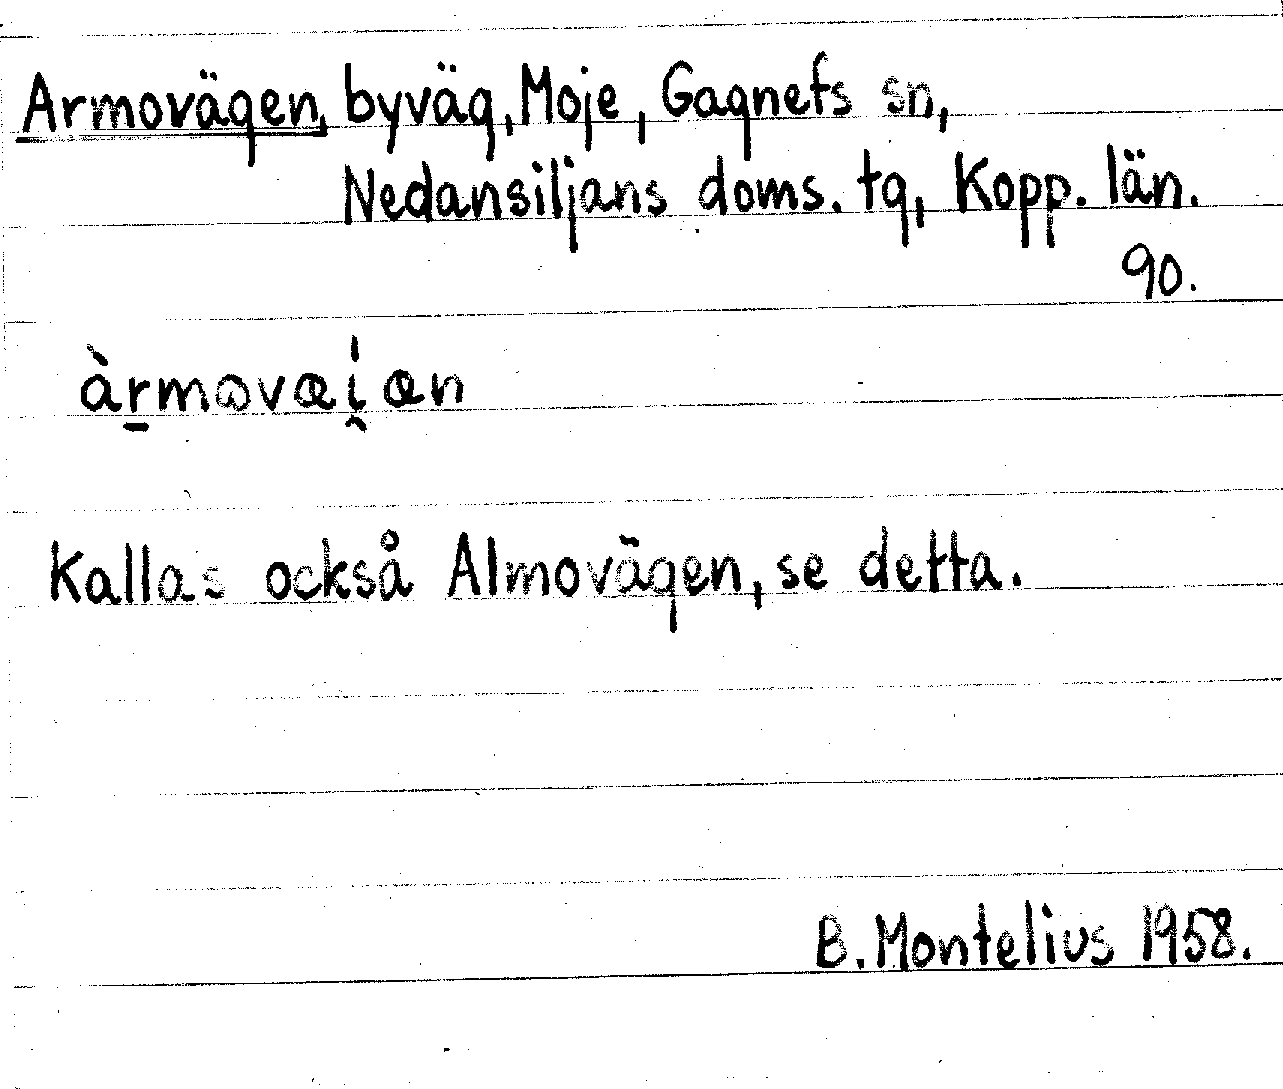 Armovägen, byväg, Moje, Gagnefs sn,
Nedansiljans doms. tg, Kopp. län.
90.
àr̠mωvæi̯æn
Kallas också Almovägen, se detta.
B. Montelius 1958.